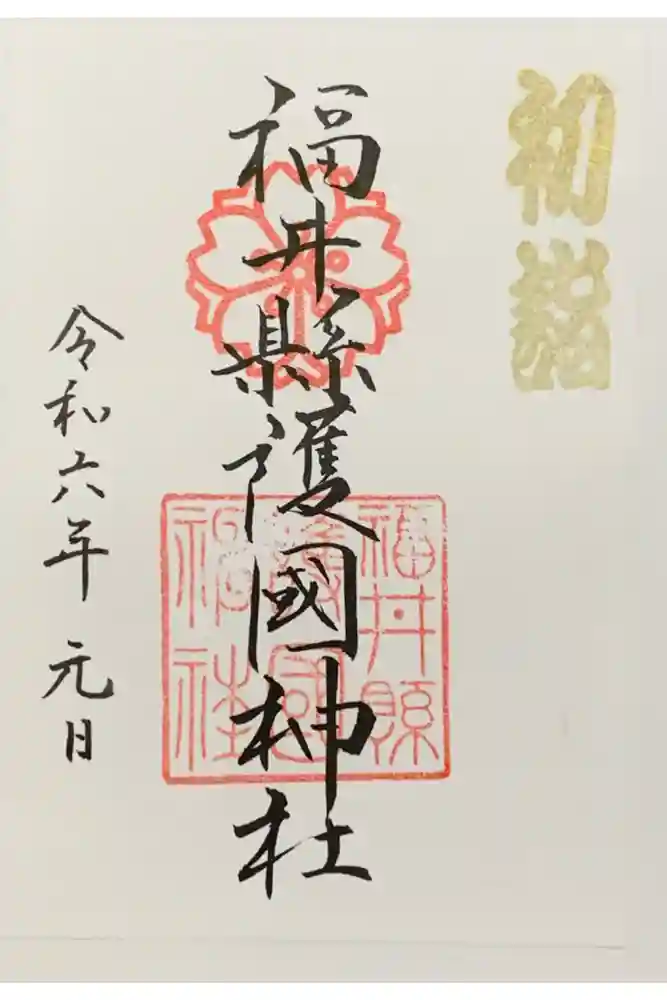 初詣
福井縣護國神社
福井縣
護國
神社
令和六年元日